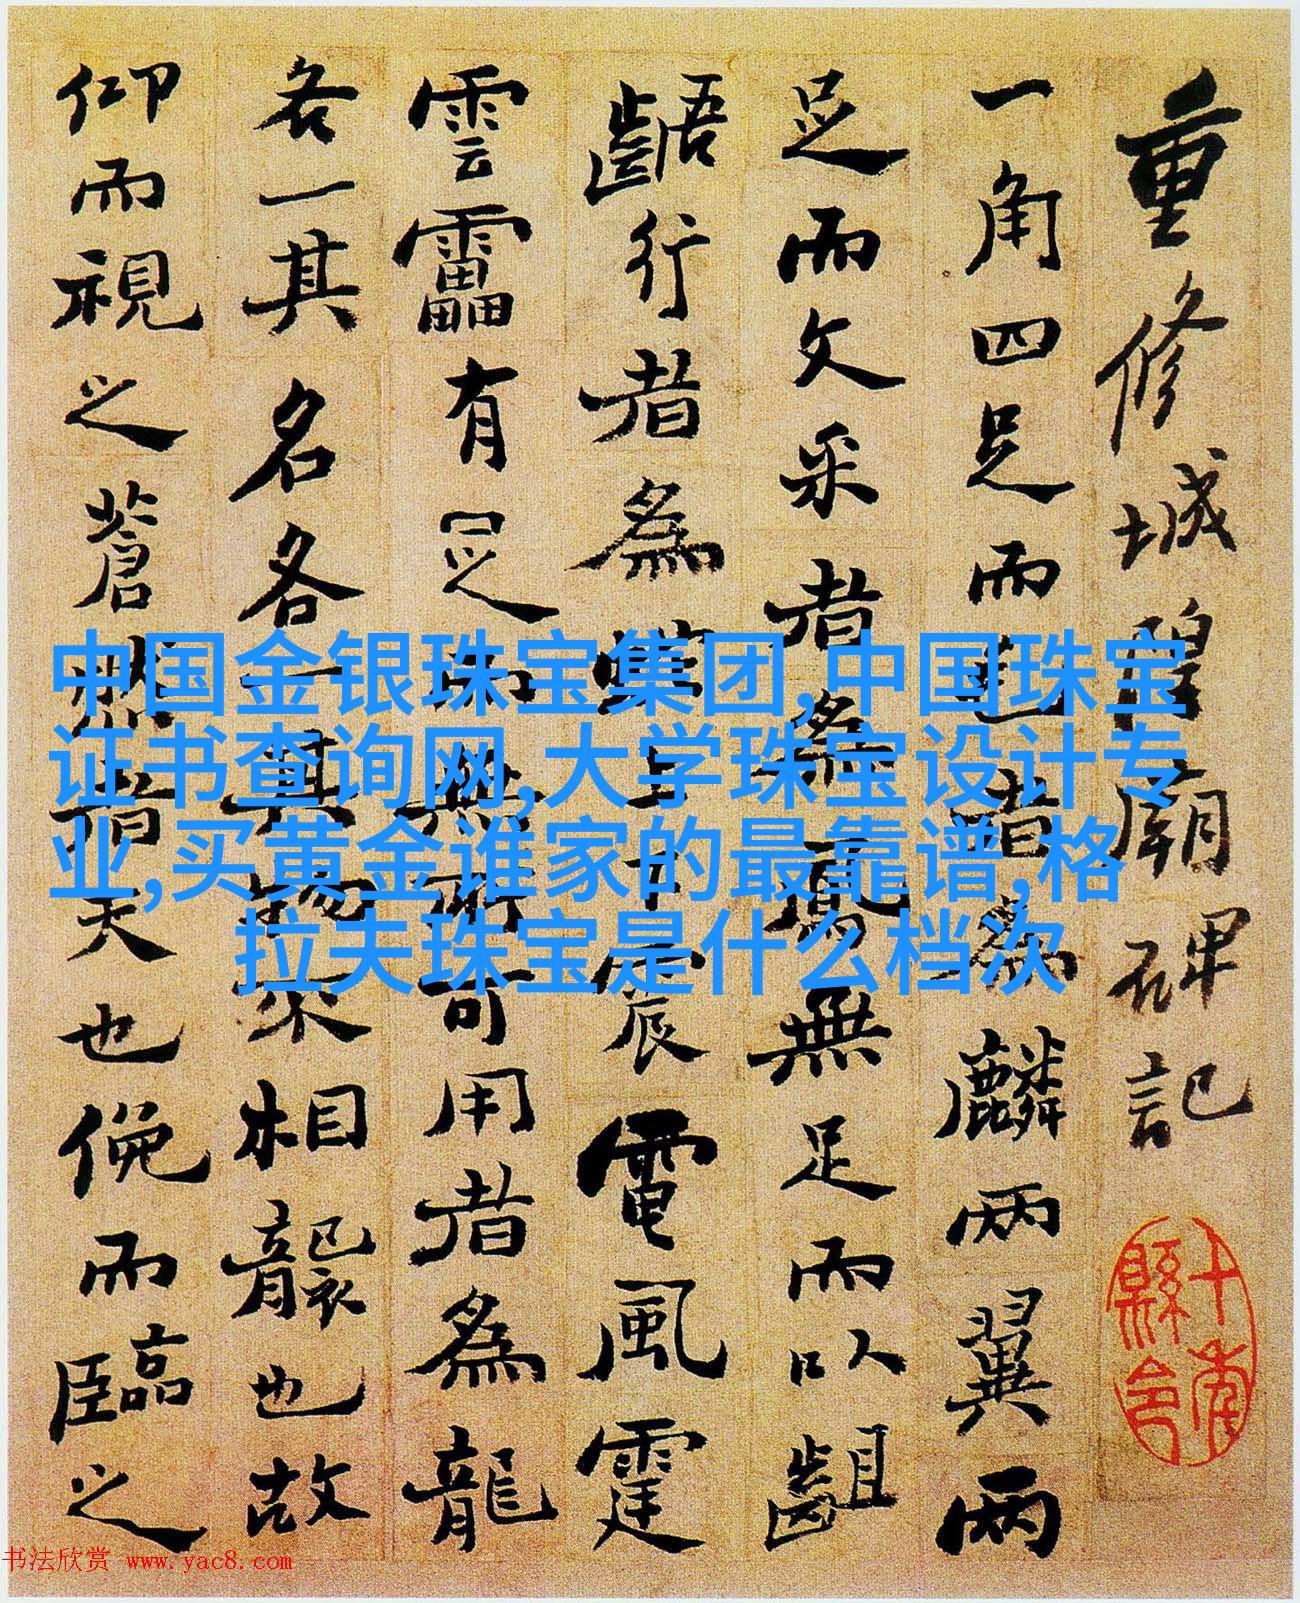 重修城隍廟碑記
一角四足而毛者為麟兩翼兩
足而文采者為鳳無足而以齟
齬行者為蛇上下震電風霆
雲靁有足而無所可用者為龍
各一其名各一其物不相襲也故
仰而視之蒼然者天也俛而臨之
十年縣令
中国金银珠宝集团,中国珠宝
证书查询网,大学珠宝设计专
业,买黄金谁家的最靠谱,格
拉夫珠宝是什么档次
书法欣赏 www.yac8.com